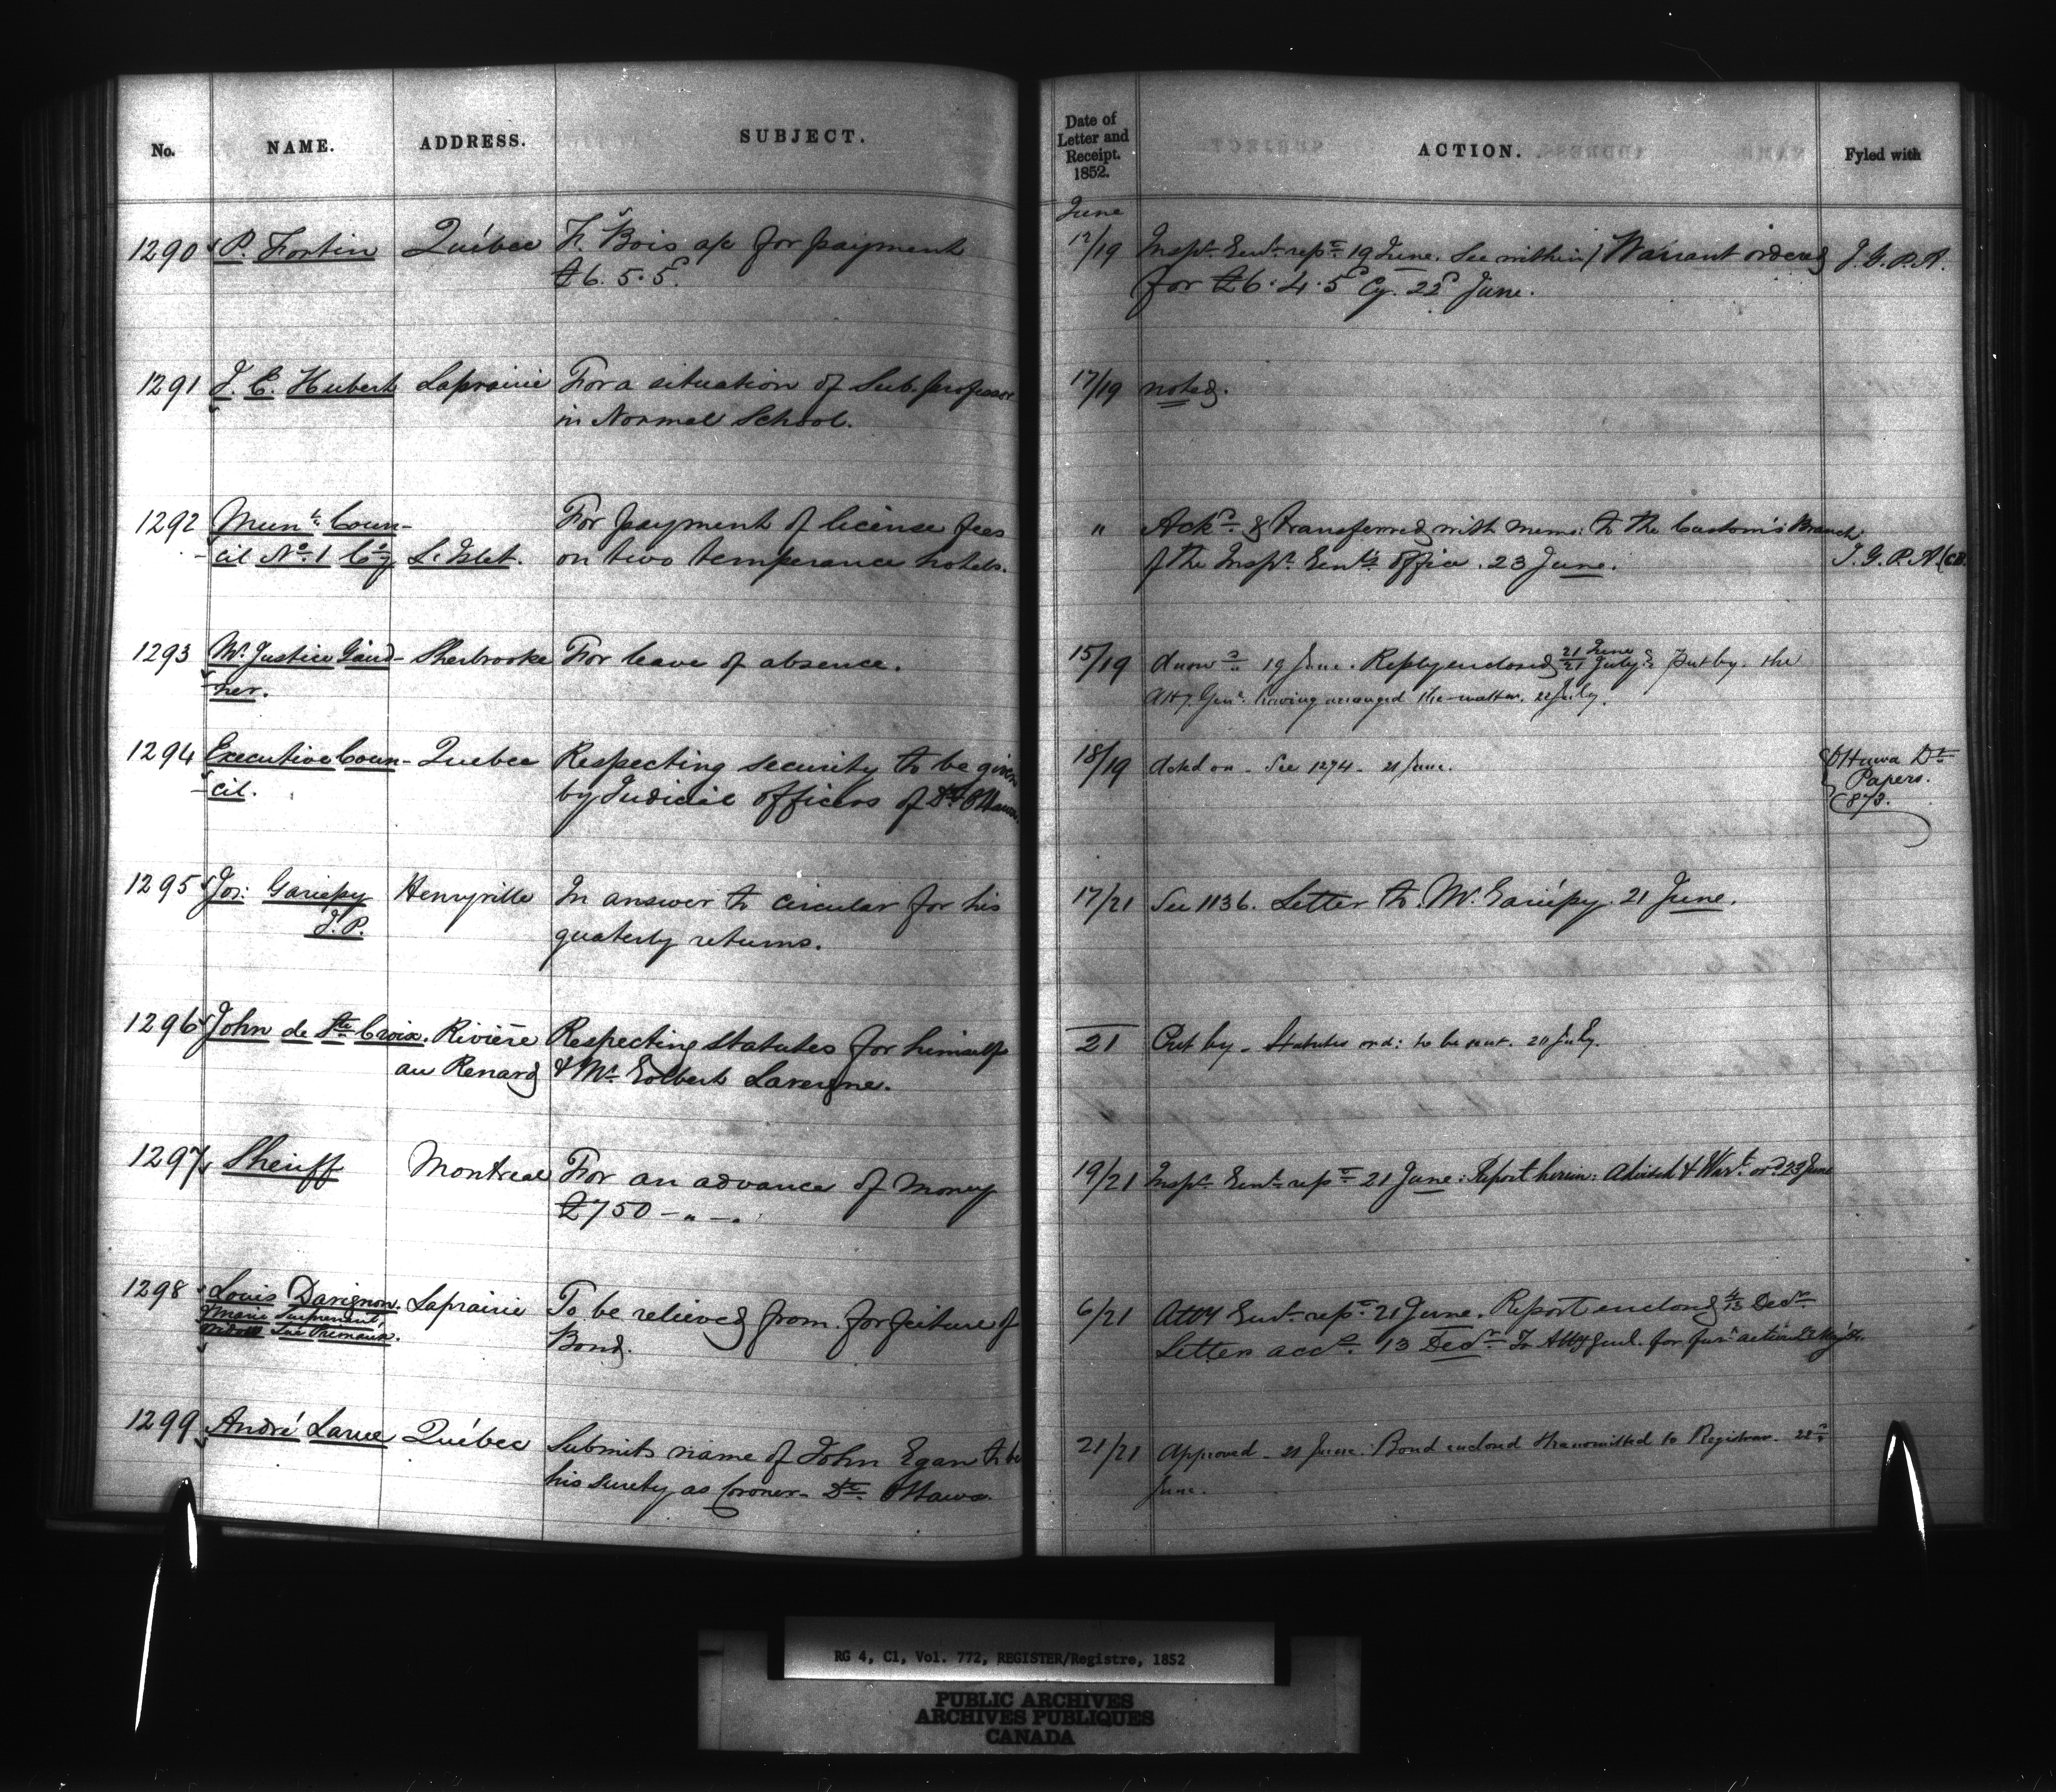 No. NAME. ADDRESS. SUBJECT.
Date of Letter and Receipt. 1852. ACTION. Fyled with
June
1290 P. Fortin Québec F. Bois a/c for payment
£6. 5. 5.
12/19 Insp. Genl. rep. 19 June. See within / Warrant ordered I. G. P. A.
for £6. 4. 5 Cy. 22d June.
1291 J. E. Hubert Laprairie For a situation of Sub. professor
in Normal School.
17/19 noted.
1292 Mun. Coun- For payment of license fees
cil No. 1 Cy L'Islet. on two temperance hotels.
" Ackd. & transferred with memo: to the Custom's Branch
of the Insp. Genl's office. 23 June. I. G. P. A. (CB.
1293 Mr. Justice Gaird- Sherbrooke For leave of absence.
ner.
15/19 19 June. Reply enclosed 21 June / 21 July. Put by. the
Atty. Genl. having arranged the matter. 22 July.
1294 Executive Coun- Quebec Respecting security to be given
cil. by Judicial officers of Dt. Ottawa.
18/19 Acted on. See 1274. 21 June. Ottawa Dt.
Papers.
873.
1295 Jos: Gariepy Henryville In answer to circular for his
J. P. quaterly returns.
17/21 See 1136. Letter to Mr. Gariépy. 21 June.
1296 John de Ste Croix. Rivière Respecting statutes for himself
au Renard & Mr. Eolbert Lavergne.
21 Put by. Statutes ord: to be sent. 20 July.
1297 Sheriff Montreal For an advance of money
£750 - " - ".
19/21 Insp. Genl. rep. 21 June: Report herein: Advised & Wart. ord. 23 June
1298 Louis Davignon. Laprairie To be relieved from forfeiture of
Marie Surprenant, Bond.
Primeaux.
6/21 Atty Genl. rep. 21 June. Report enclosed 4/13 Decr.
Letter accd. 13 Decr. To Atty Genl. for fur. action
1299 André Larue Québec Submits name of John Egan to be
his surety as Coroner. Dt. Ottawa.
21/21 Approved. 21 June. Bond enclosed transmitted to Registrar. 22d
June.
RG 4, C1, Vol. 772, REGISTER/Registre, 1852
PUBLIC ARCHIVES
ARCHIVES PUBLIQUES
CANADA